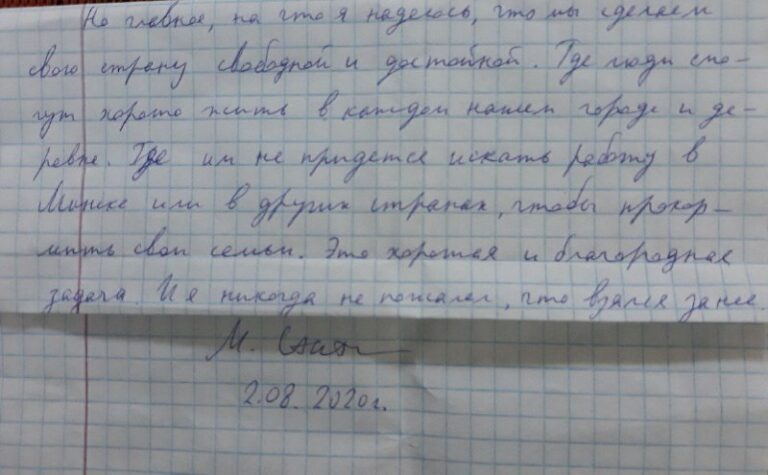 Но главное, на что я надеюсь, что мы сделаем
свою страну свободной и достойной. Где люди смо-
гут хорошо жить в каждом нашем городе и де-
ревне. Где им не придется искать работу в
Минске или в других странах, чтобы прокор-
мить свои семьи. Это хорошая и благородная
задача. И я никогда не пожалел, что взялся за нее.
М.
2.08. 2020г.